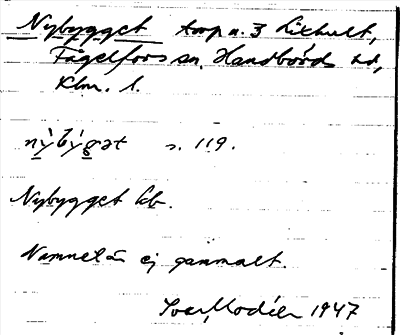 Nybygget torp u. 3 Lixhult,
Fågelfors sn. Handbörds hd,
Klm. l.
nỳbýgət s. 119.
Nybygget kb.
Namnet är ej gammalt.
Ivar Modéer 1947